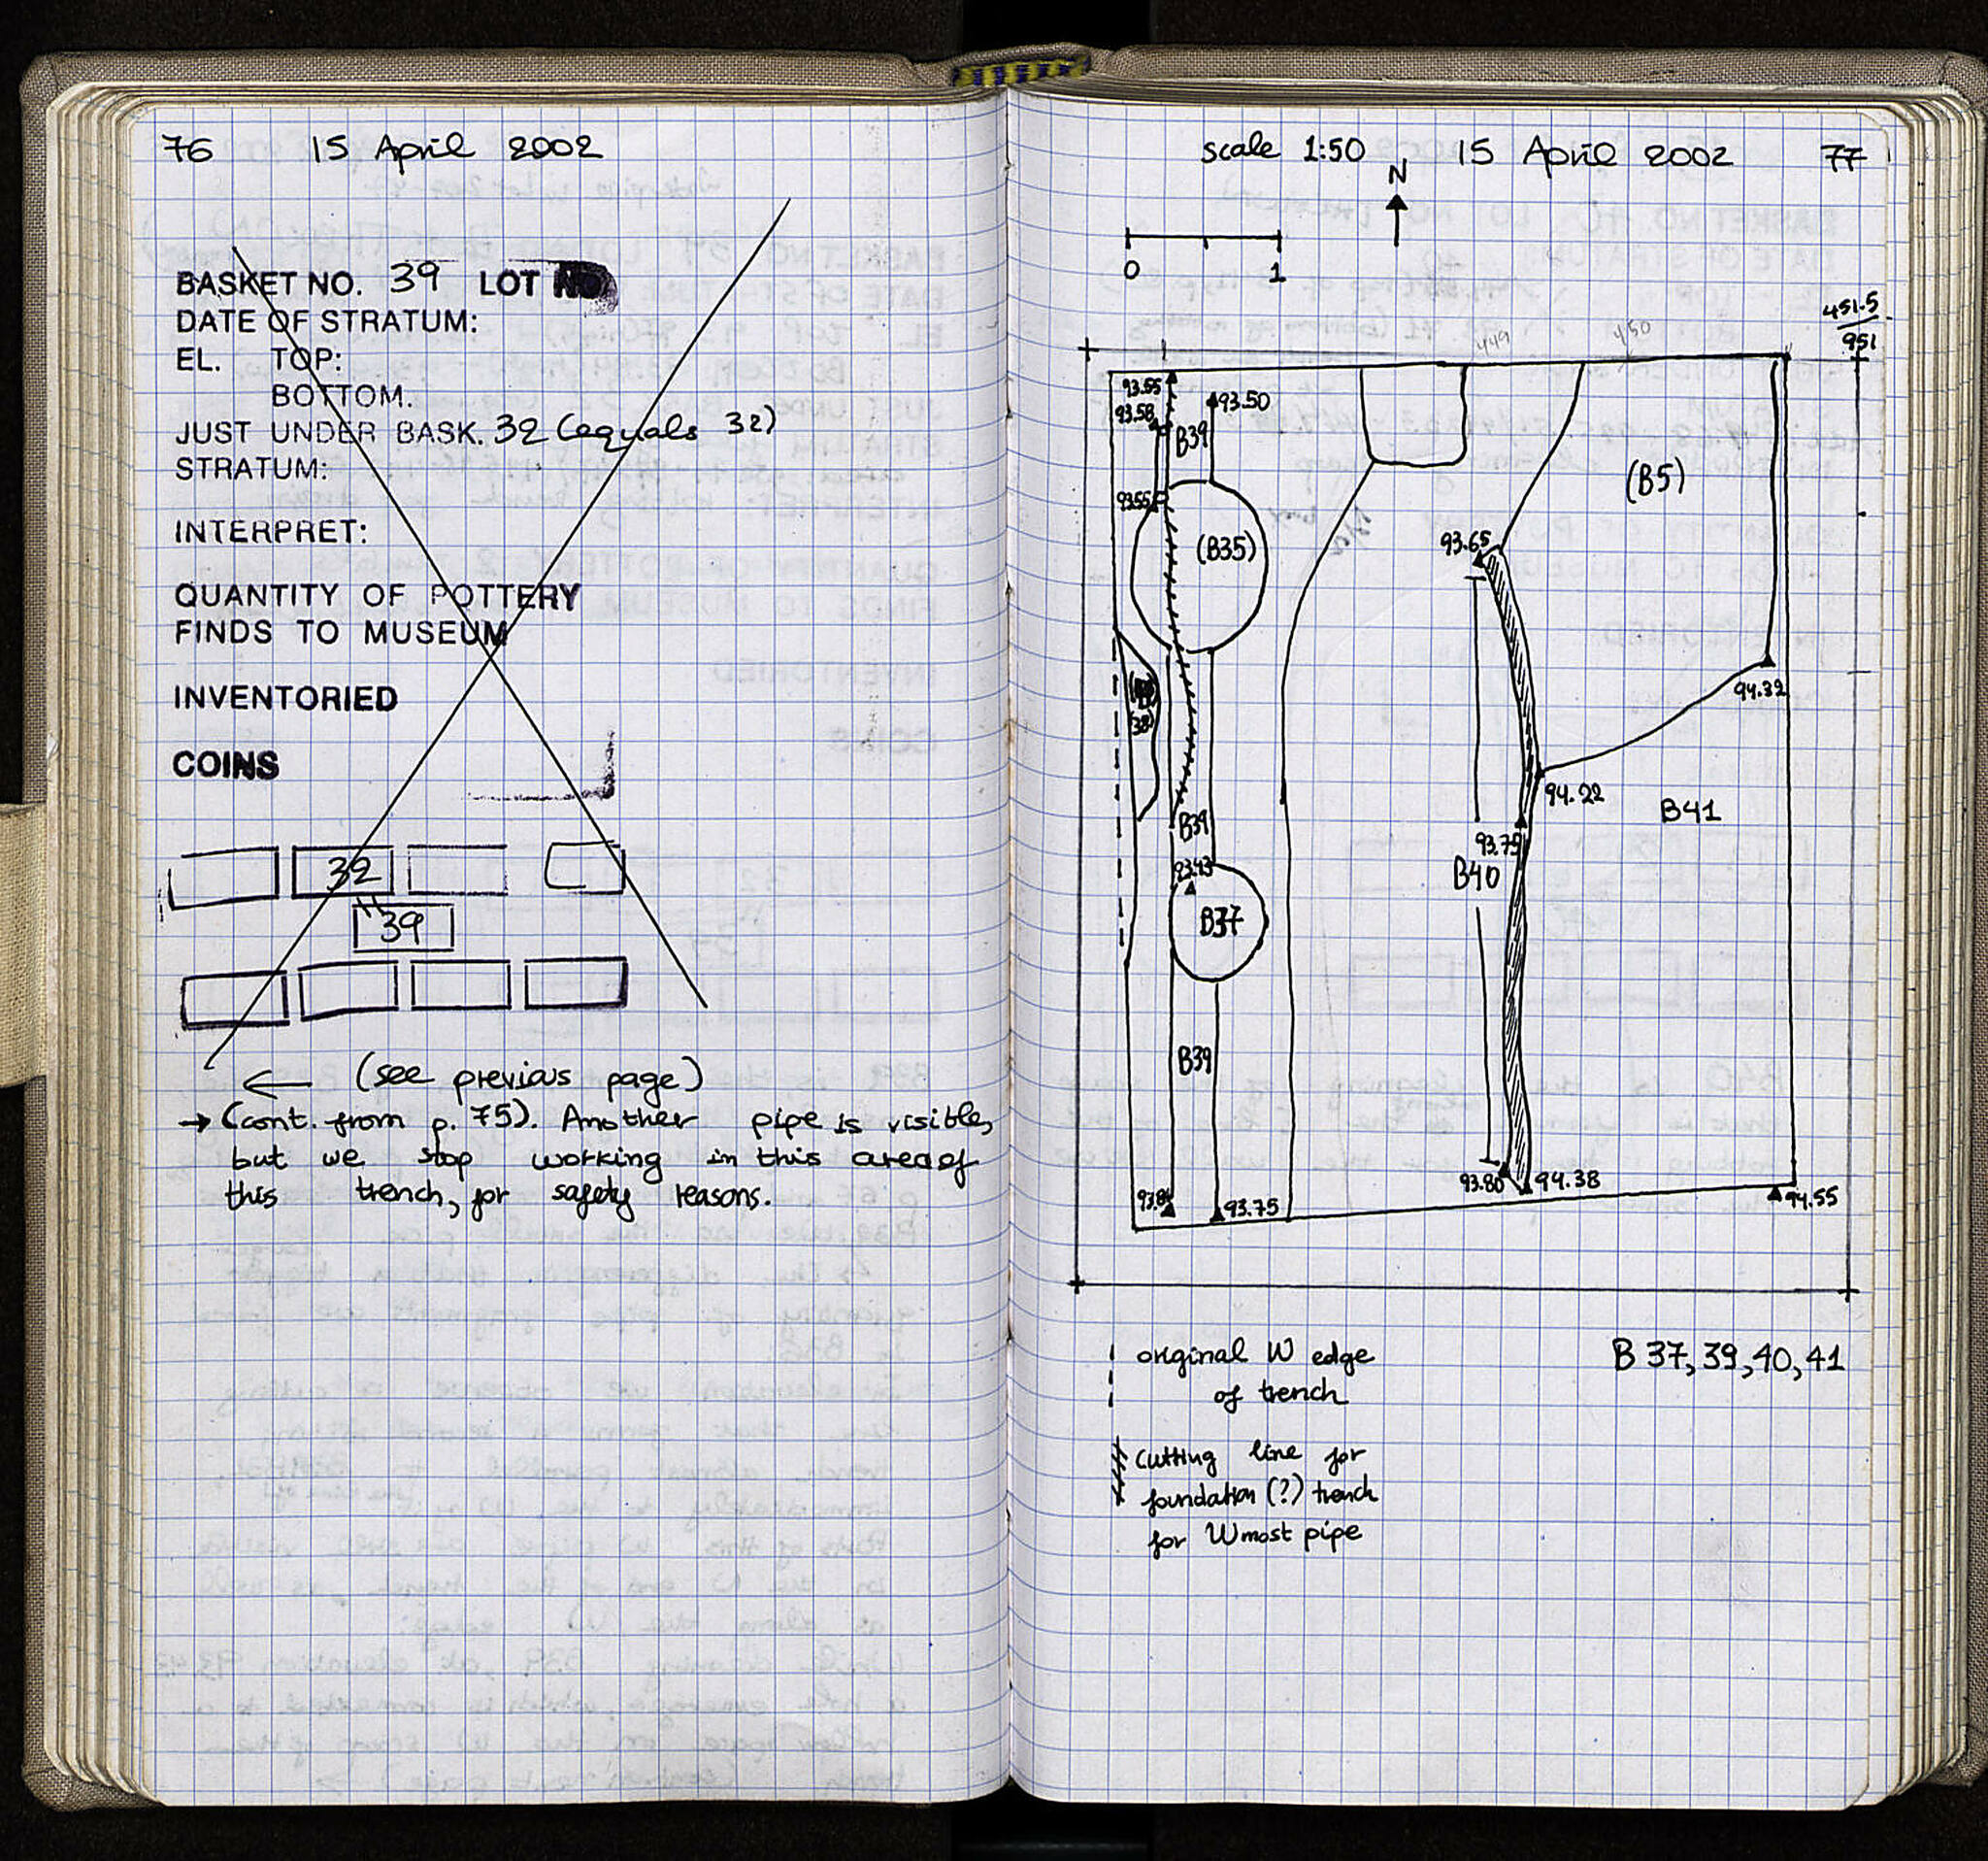 76 15 April 2002
BASKET NO. 39 LOT NO
DATE OF STRATUM:
EL. TOP:
BOTTOM.
JUST UNDER BASK. 32 (equals 32)
STRATUM:
INTERPRET:
QUANTITY OF POTTERY
FINDS TO MUSEUM
INVENTORIED
COINS
32
39
← (see previous page)
→ (cont. from p. 75). Another pipe is visible,
but we stop working in this area of
this trench, for safety reasons.
scale 1:50 15 April 2002 77
N
0 1
451.5
951
449 450
93.55
93.50
93.58
B39
(B5)
93.55
(B35)
93.65
94.32
(38)
94.22
B41
B39
93.75
93.43
B40
B37
B39
93.80 94.38
93.75
94.55
original W edge
of trench
B 37, 39, 40, 41
cutting line for
foundation (?) trench
for Wmost pipe